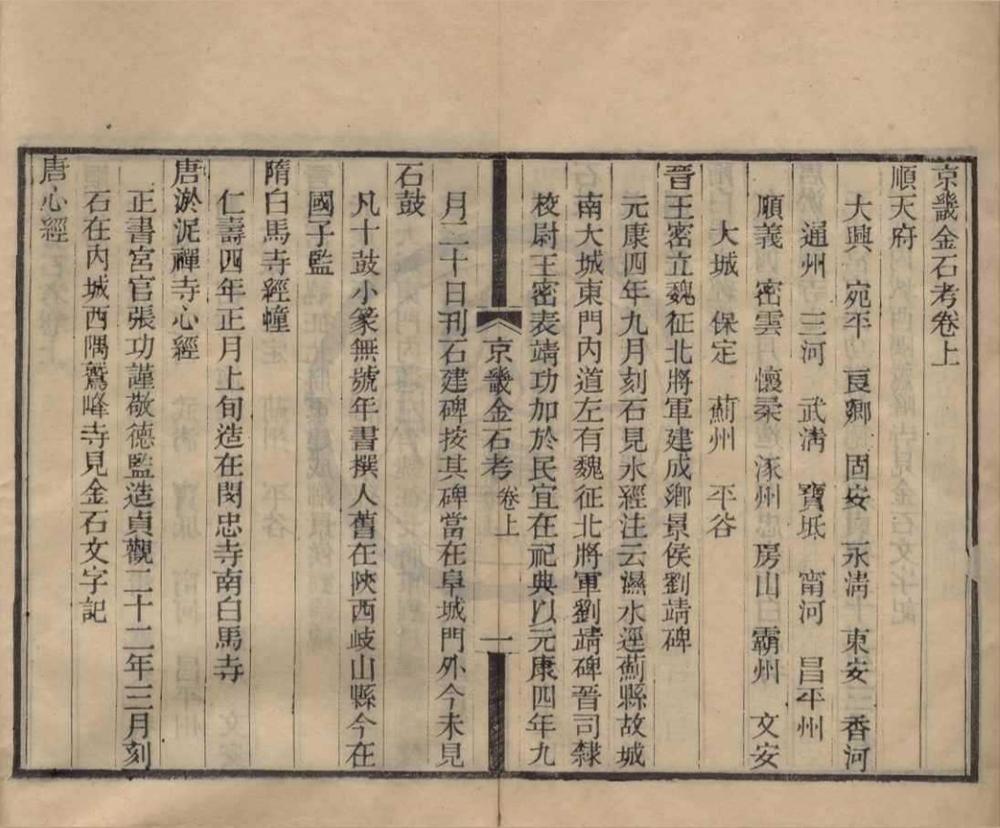 京畿金石考卷上
順天府
大興 宛平 良鄉 固安 永淸 東安 香河
通州 三河 武淸 寶坻 甯河 昌平州
順義 密雲 懷柔 涿州 房山 霸州 文安
大城 保定 薊州 平谷
晉王密立魏征北將軍建成鄉景侯劉靖碑
元康四年九月刻石見水經注云濕水逕薊縣故城
南大城東門內道左有魏征北將軍劉靖碑晉司隸
校尉王密表靖功加於民宜在祀典以元康四年九
京畿金石考 卷上 一
月二十日刊石建碑按其碑當在阜城門外今未見
石鼓
凡十鼓小篆無號年書撰人舊在陝西岐山縣今在
國子監
隋白馬寺經幢
仁壽四年正月上旬造在閔忠寺南白馬寺
唐淤泥禪寺心經
正書宮官張功謹敬德監造貞觀二十二年三月刻
石在內城西隅鷲峰寺見金石文字記
唐心經